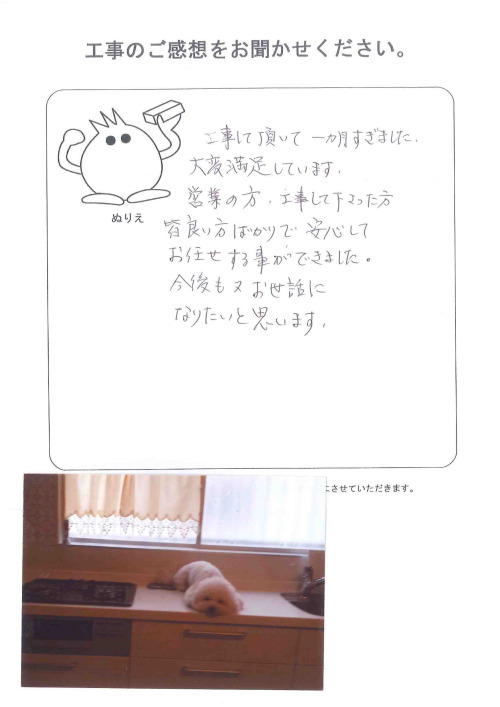 工事のご感想をお聞かせください。
ぬりえ
工事して頂いて 一ヵ月すぎました.
大変満足しています.
営業の方、工事して下さった方
皆良い方ばかりで 安心して
お任せする事ができました。
今後も又お世話に
なりたいと思います.
させていただきます。